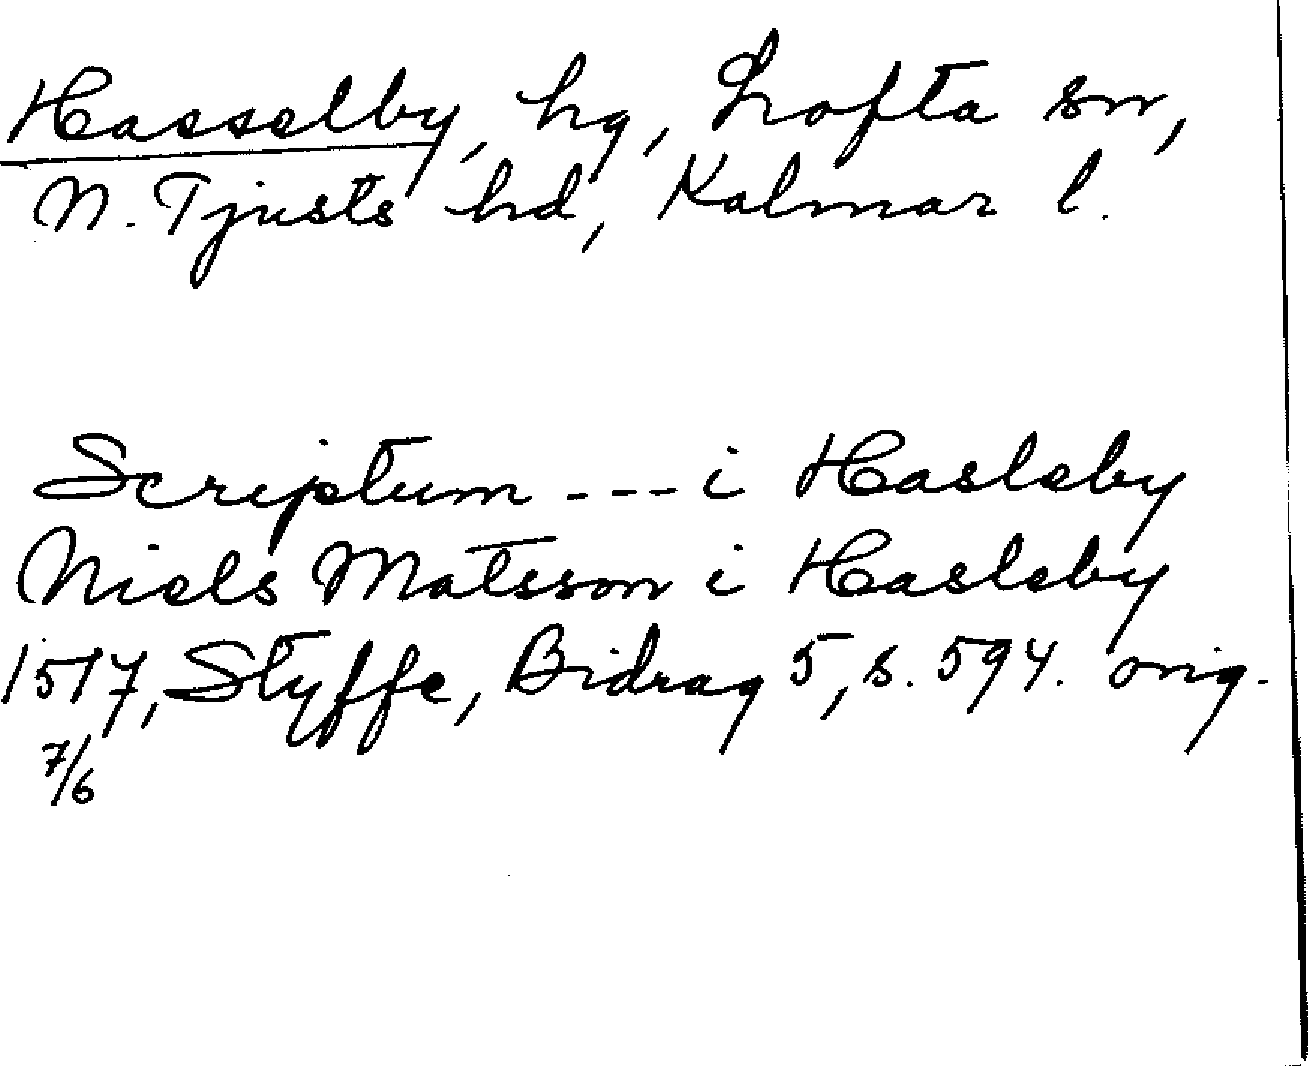 Hasselby, hg, Lofta sn,
N. Tjusts hd, Kalmar l.
Scriptum --- i Hasleby
Niels Matsson i Hasleby
1517, Styffe, Bidrag 5, s. 594. orig.
7/6